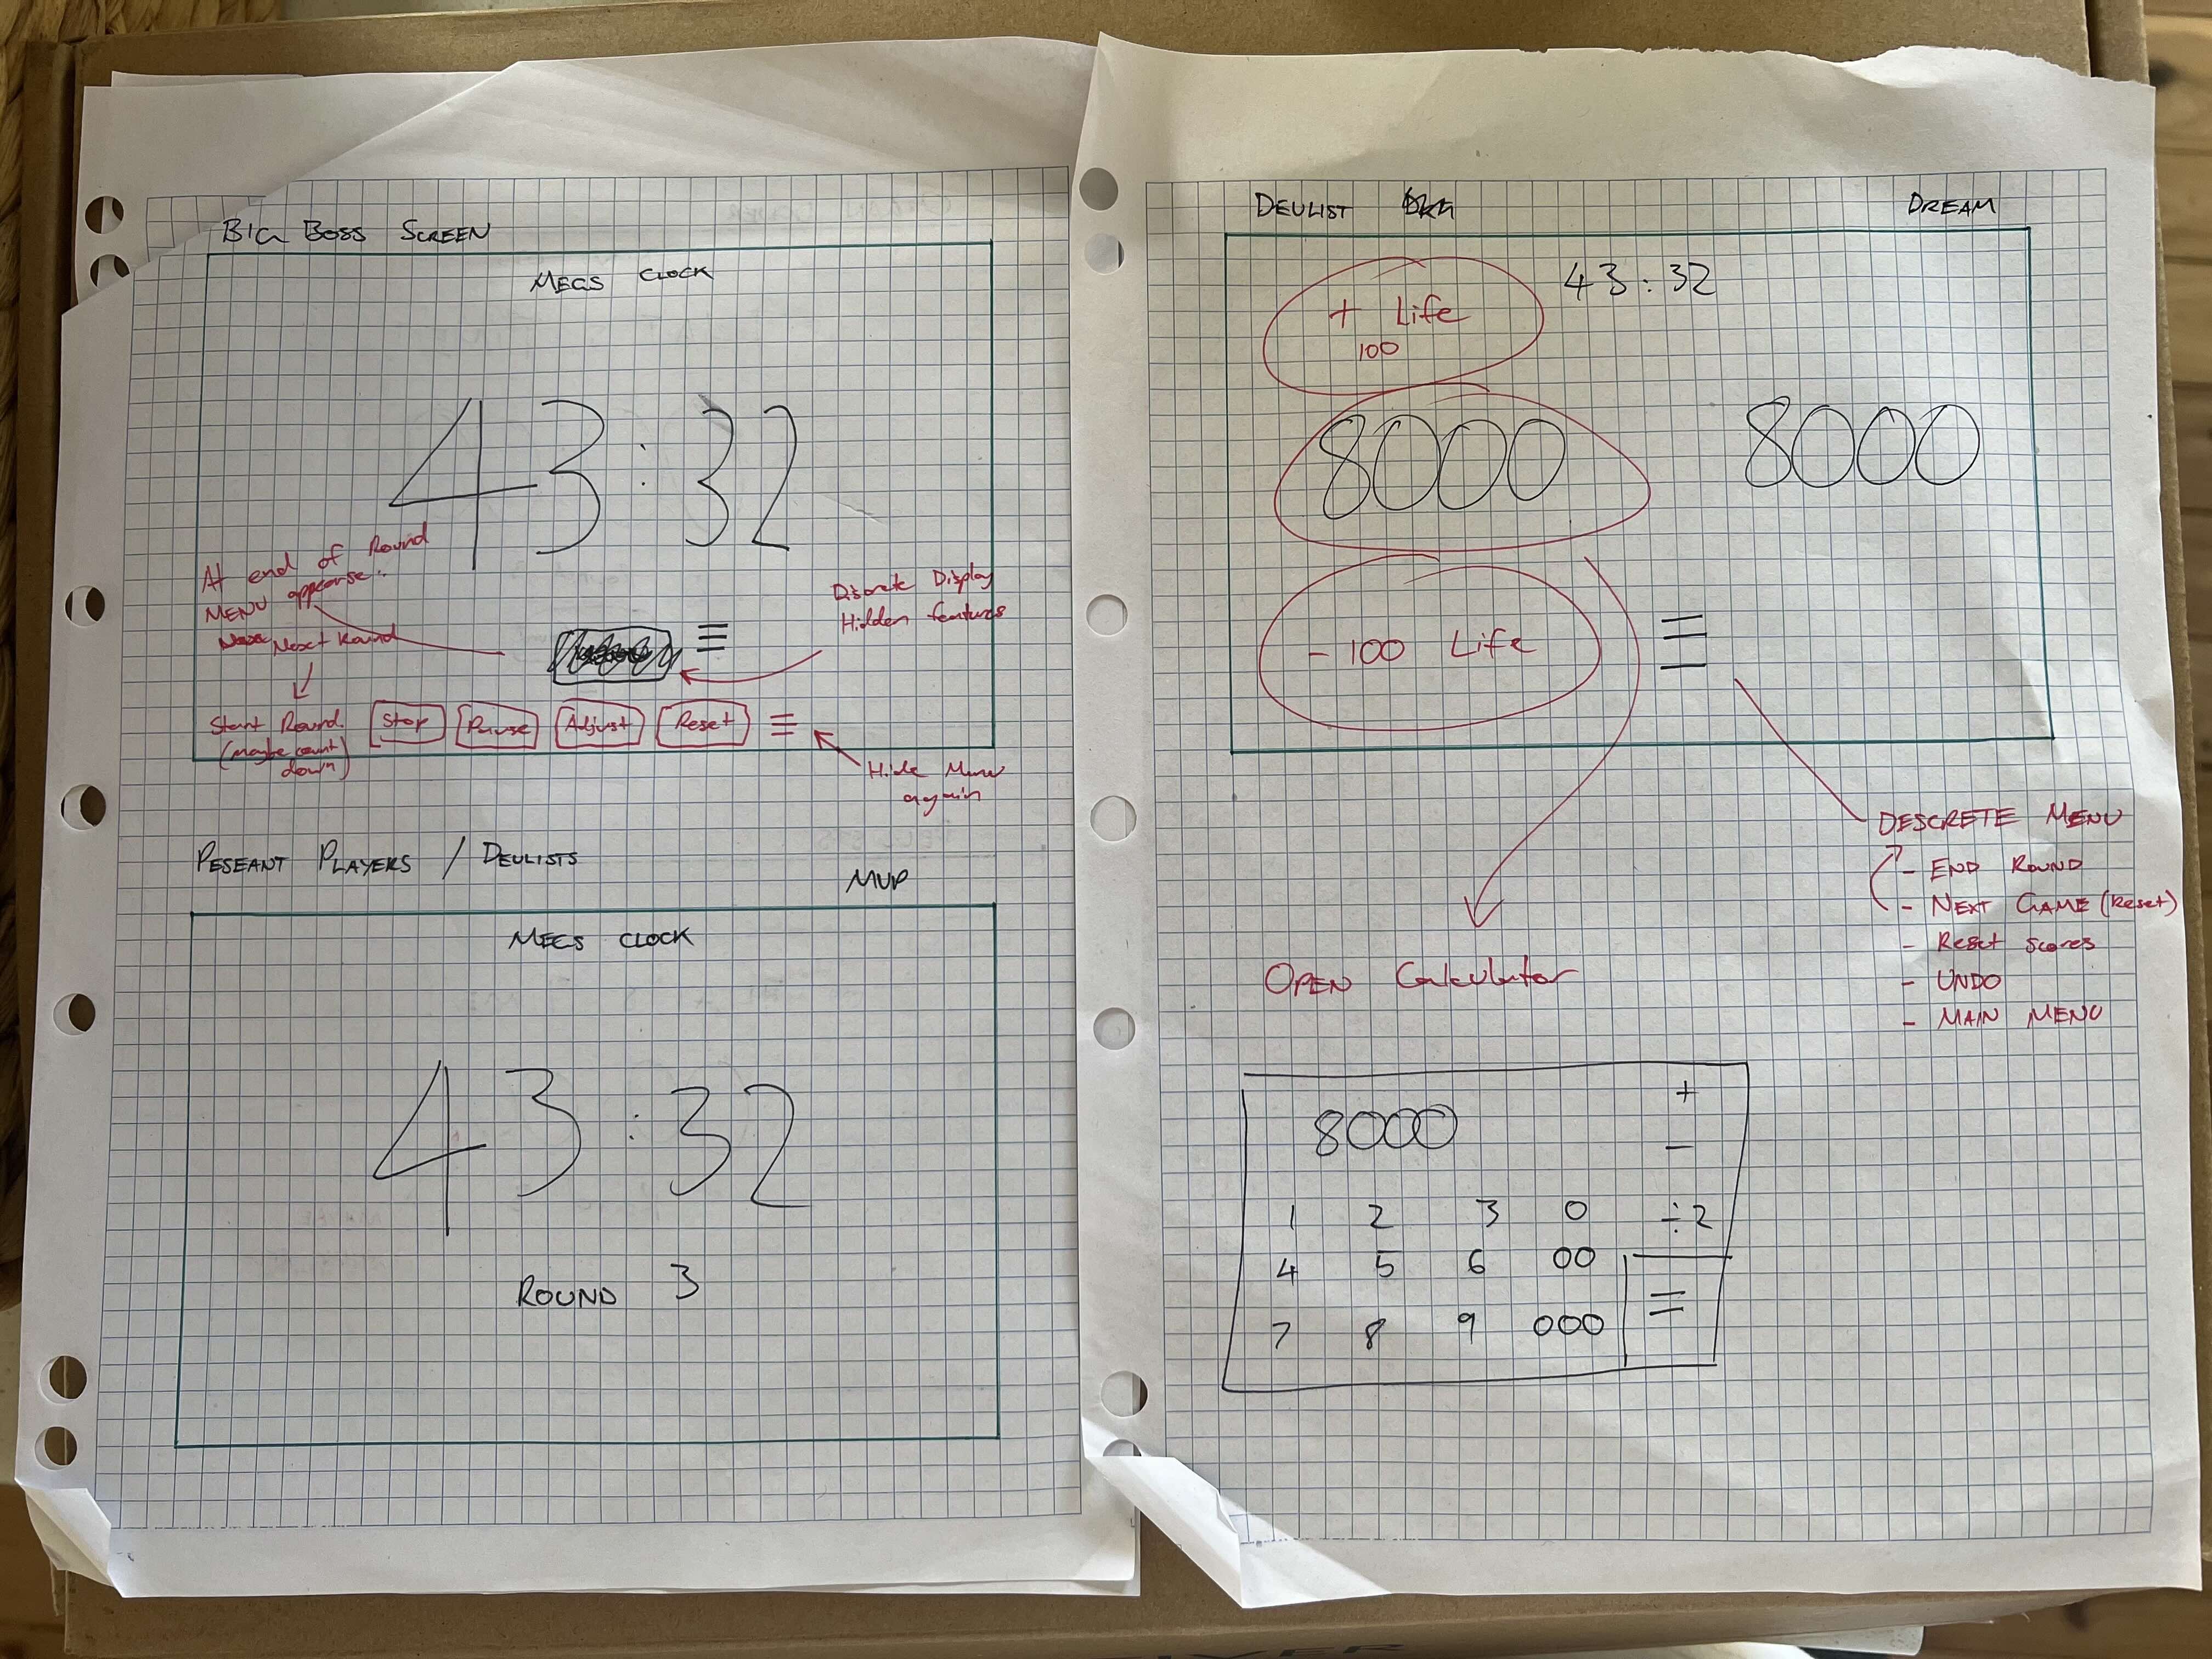 BIG BOSS SCREEN
MEGS CLOCK
43:32
At end of Round
MENU appearse:
Next Round
Start Round.
(maybe count
down)
Discrete Display
Hidden features
Stop
Pause
Adjust
Reset
Hide Menu
again
PESEANT PLAYERS / DEULISTS
MVP
MEGS CLOCK
43:32
ROUND 3
DEULIST
DREAM
43:32
+ Life
100
8000
8000
- 100 Life
DESCRETE MENU
- END ROUND
- NEXT GAME (Reset)
- Reset scores
- UNDO
- MAIN MENU
OPEN Calculator
8000
+
-
1 2 3 0 ÷2
4 5 6 00
7 8 9 000
=